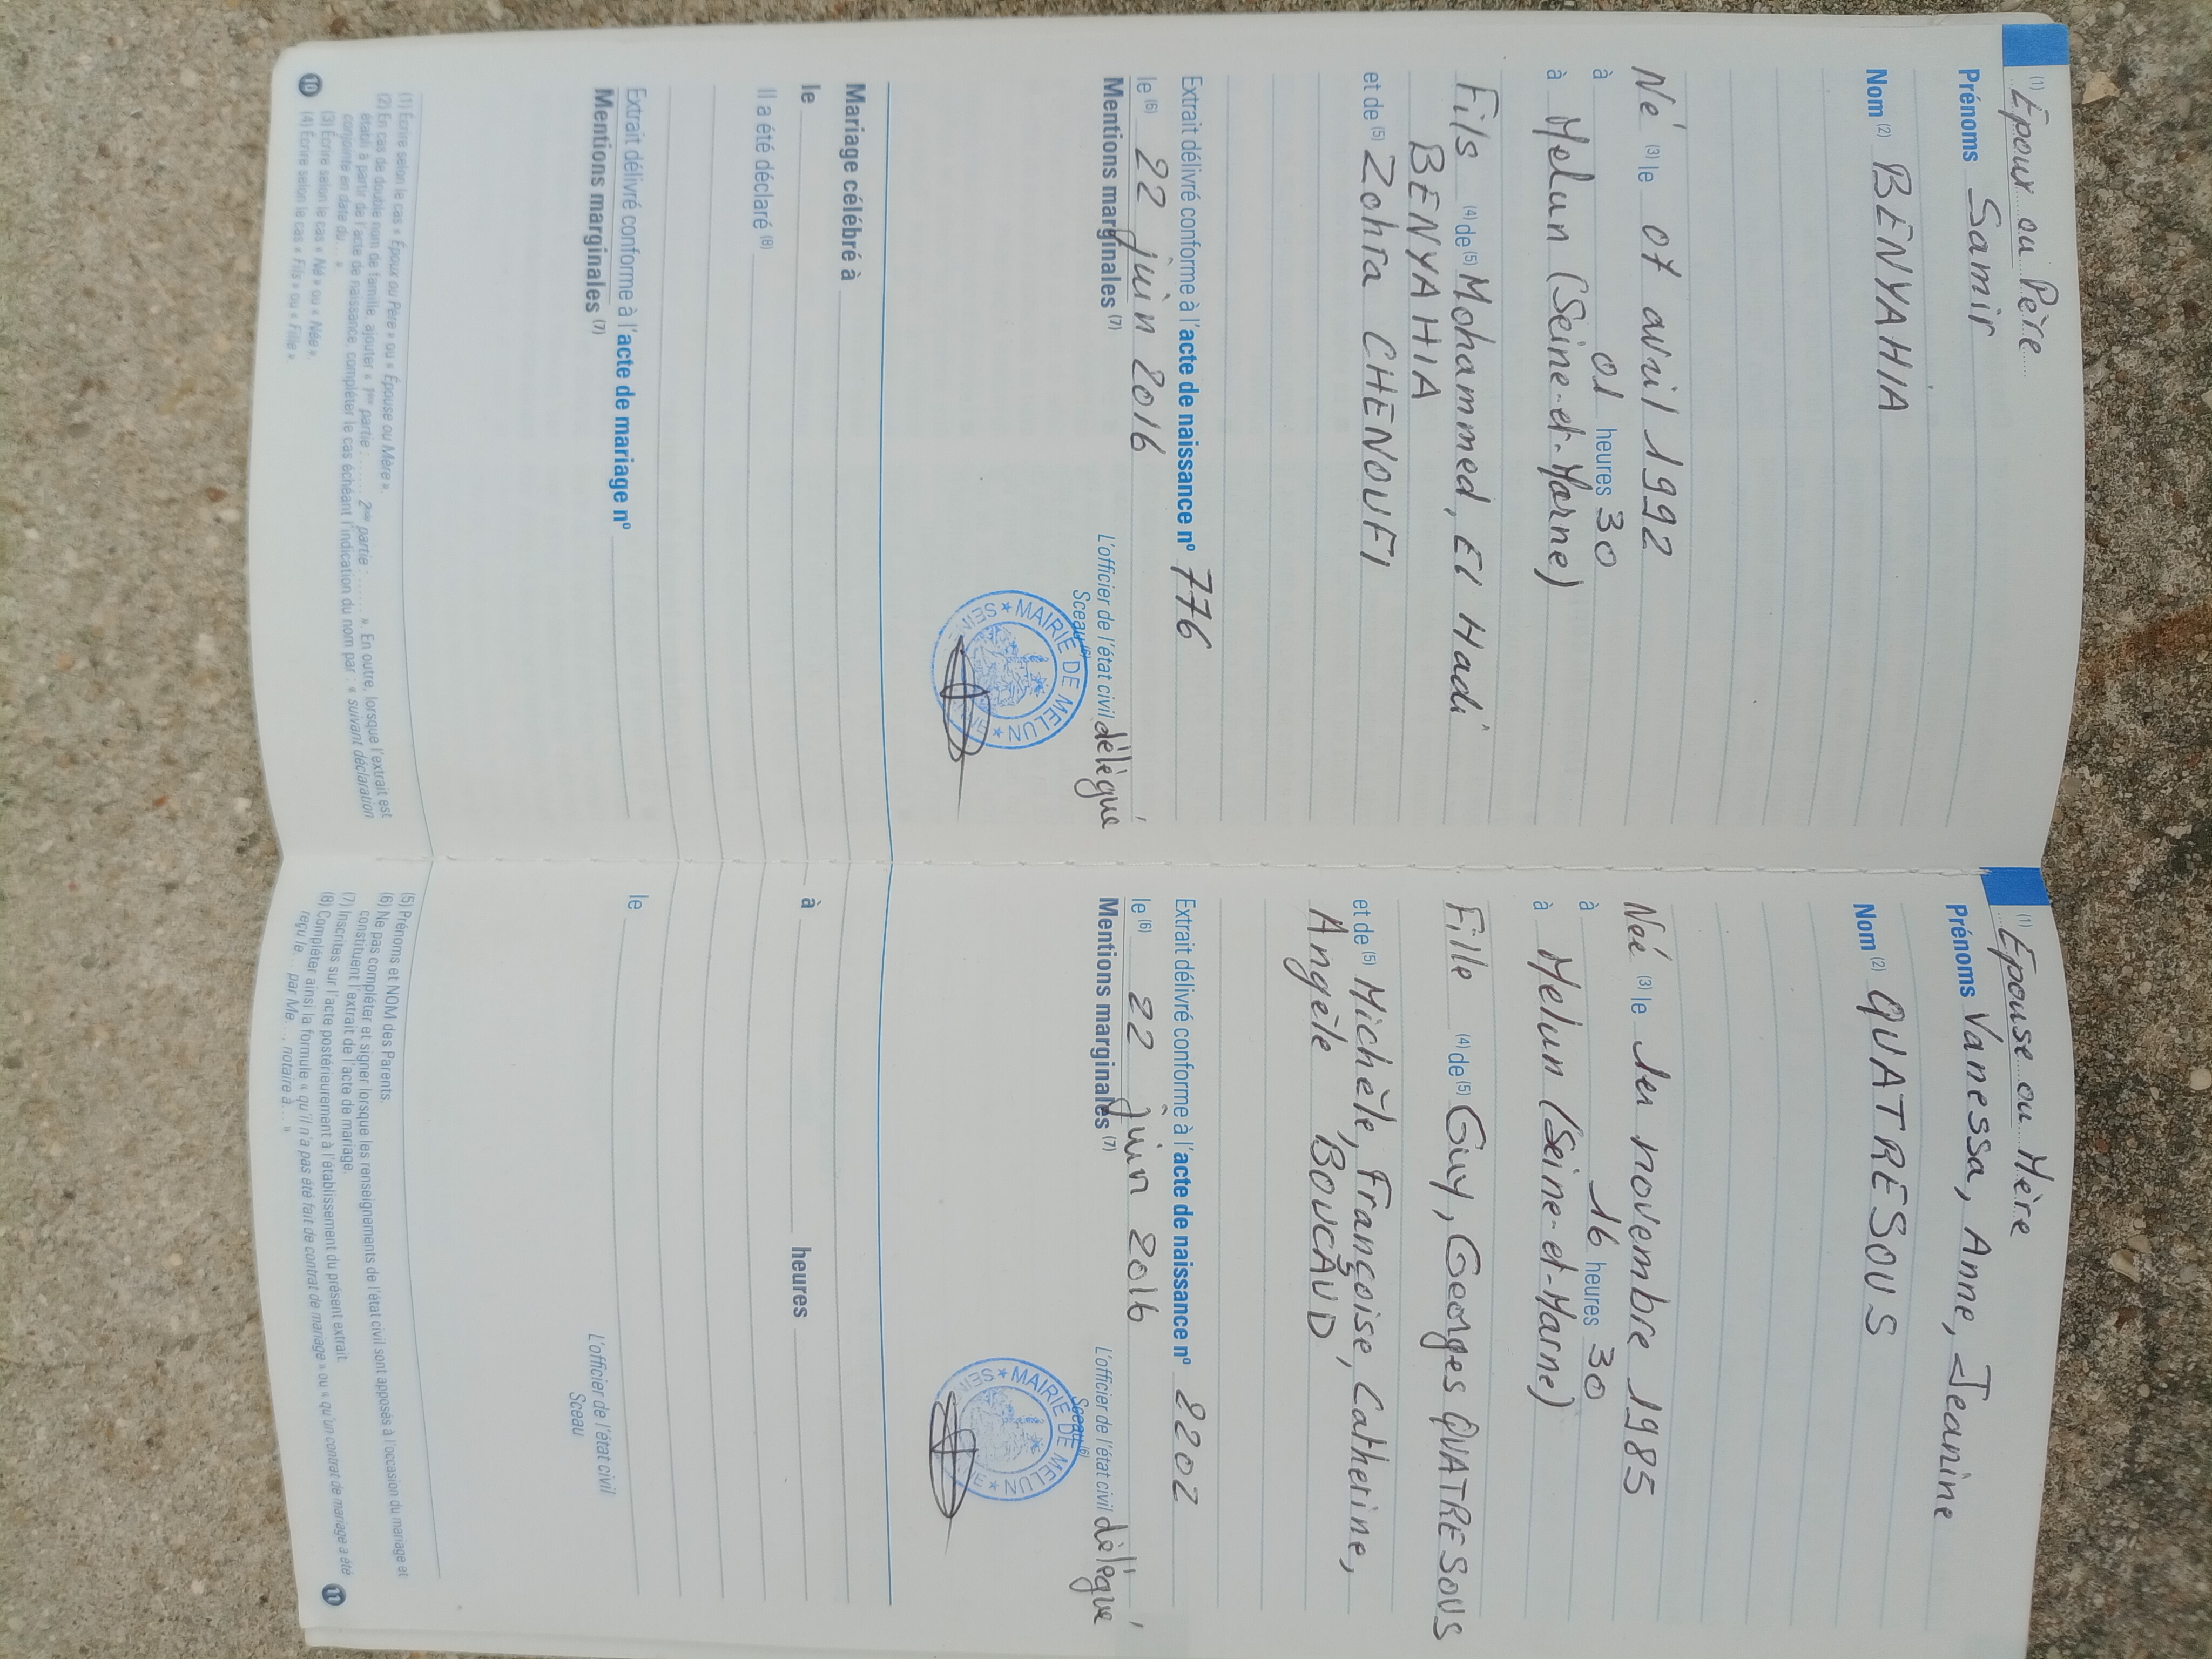 (1) Époux ou Père
Prénoms Samir
Nom (2) BENYAHIA
Né (3) le 07 avril 1992
à 01 heures 30
à Melun (Seine-et-Marne)
Fils (4) de (5) Mohammed, El Hadi
BENYAHIA
et de (5) Zohra CHENOUFI
Extrait délivré conforme à l'acte de naissance nº 776
le (6) 22 juin 2016
Mentions marginales (7)
L'officier de l'état civil délégué
Sceau (6)
MAIRIE DE MELUN
Mariage célébré à
le
Il a été déclaré (8)
Extrait délivré conforme à l'acte de mariage nº
Mentions marginales (7)
(1) Écrire selon le cas « Époux ou Père » ou « Épouse ou Mère ».
(2) En cas de double nom de famille, ajouter « 1re partie : ...... 2nde partie : ...... ». En outre, lorsque l'extrait est
établi à partir de l'acte de naissance, compléter le cas échéant l'indication du nom par : « suivant déclaration
conjointe en date du ... ».
(3) Écrire selon le cas « Né » ou « Née ».
(4) Écrire selon le cas « Fils » ou « Fille ».
10
(1) Épouse ou Mère
Prénoms Vanessa, Anne, Jeanine
Nom (2) QUATRESOUS
Neé (3) le 1er novembre 1985
à 16 heures 30
à Melun (Seine-et-Marne)
Fille (4) de (5) Guy, Georges QUATRESOUS
et de (5) Michèle, Françoise, Catherine,
Angèle BOUCAUD
Extrait délivré conforme à l'acte de naissance nº 2202
le (6) 22 juin 2016
Mentions marginales (7)
L'officier de l'état civil délégué
Sceau (6)
MAIRIE DE MELUN
à heures
le
L'officier de l'état civil
Sceau
(5) Prénoms et NOM des Parents.
(6) Ne pas compléter et signer lorsque les renseignements de l'état civil sont apposés à l'occasion du mariage et
constituent l'extrait de l'acte de mariage.
(7) Inscrites sur l'acte postérieurement à l'établissement du présent extrait.
(8) Compléter ainsi la formule « qu'il n'a pas été fait de contrat de mariage » ou « qu'un contrat de mariage a été
reçu le... par Me..., notaire à... »
11